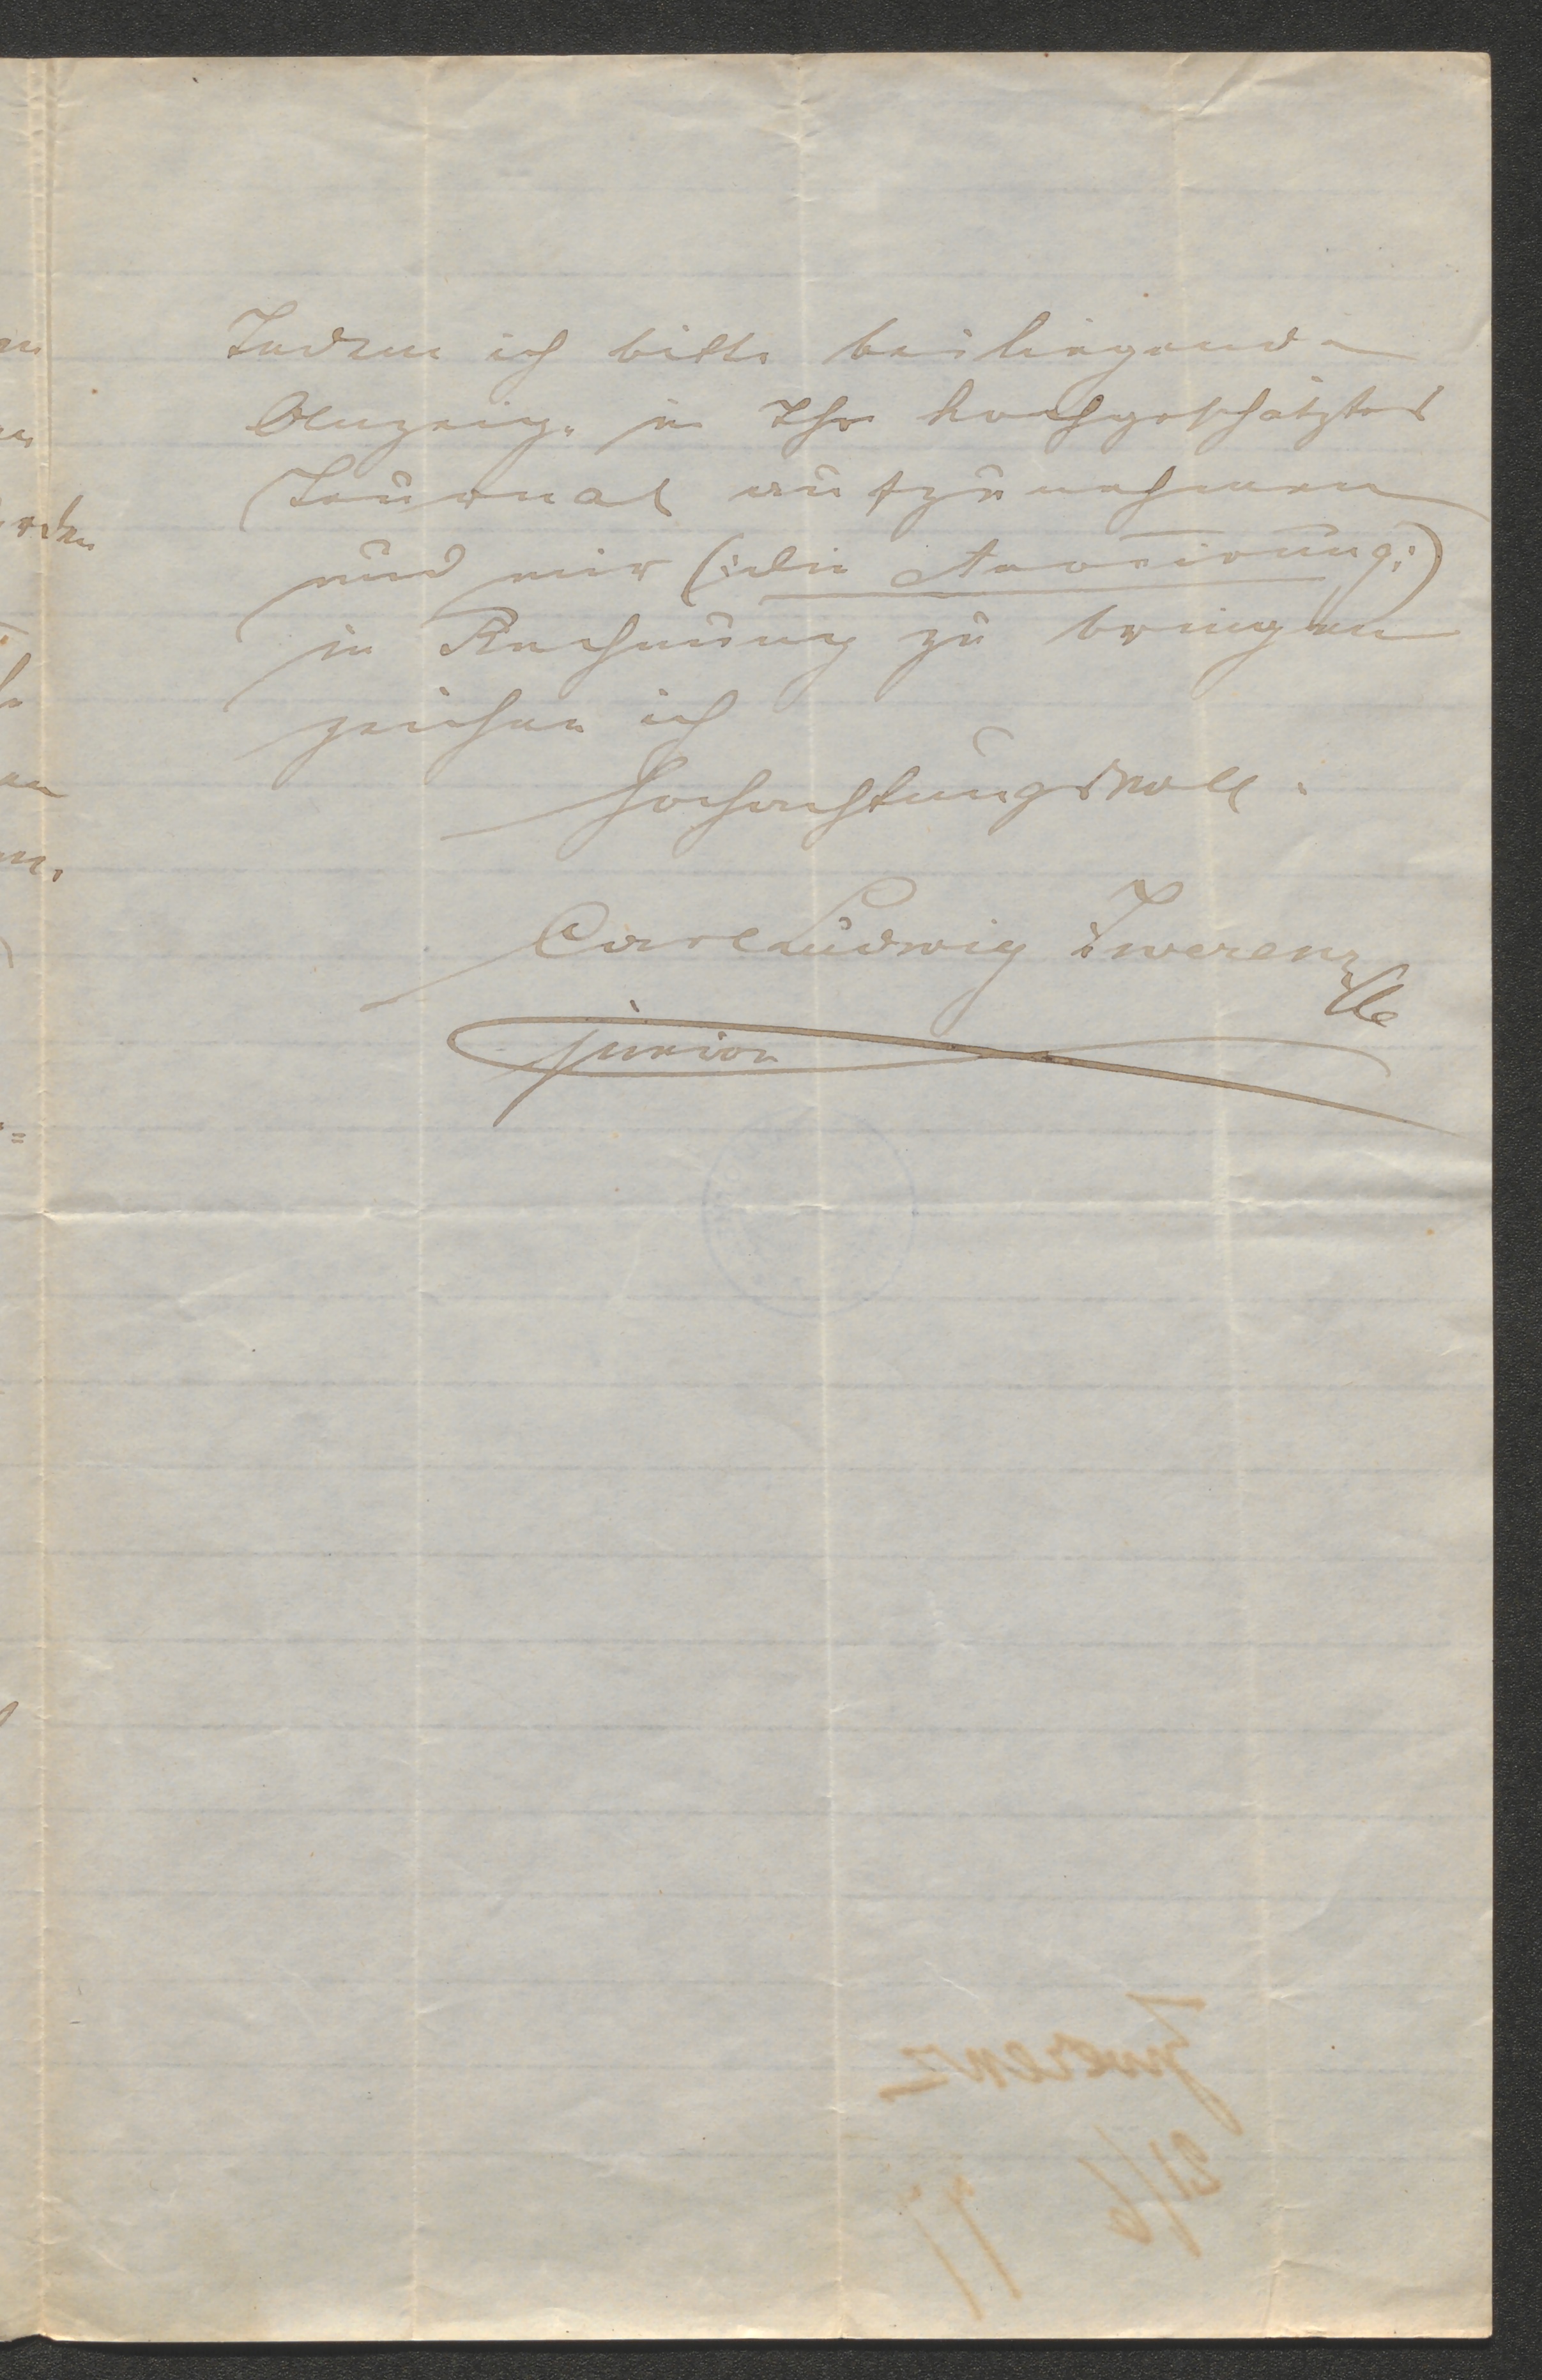 Indem ich bitte beiliegende
Anzeige in Ihr hochgeschätztes
Journal aufzunehmen
und mir (:die :)
in Rechnung zu bringen
zeichne ich
Hochachtungsvoll.
Carl Ludwig Zwerenz
junior
Zwerenz
21/6 77